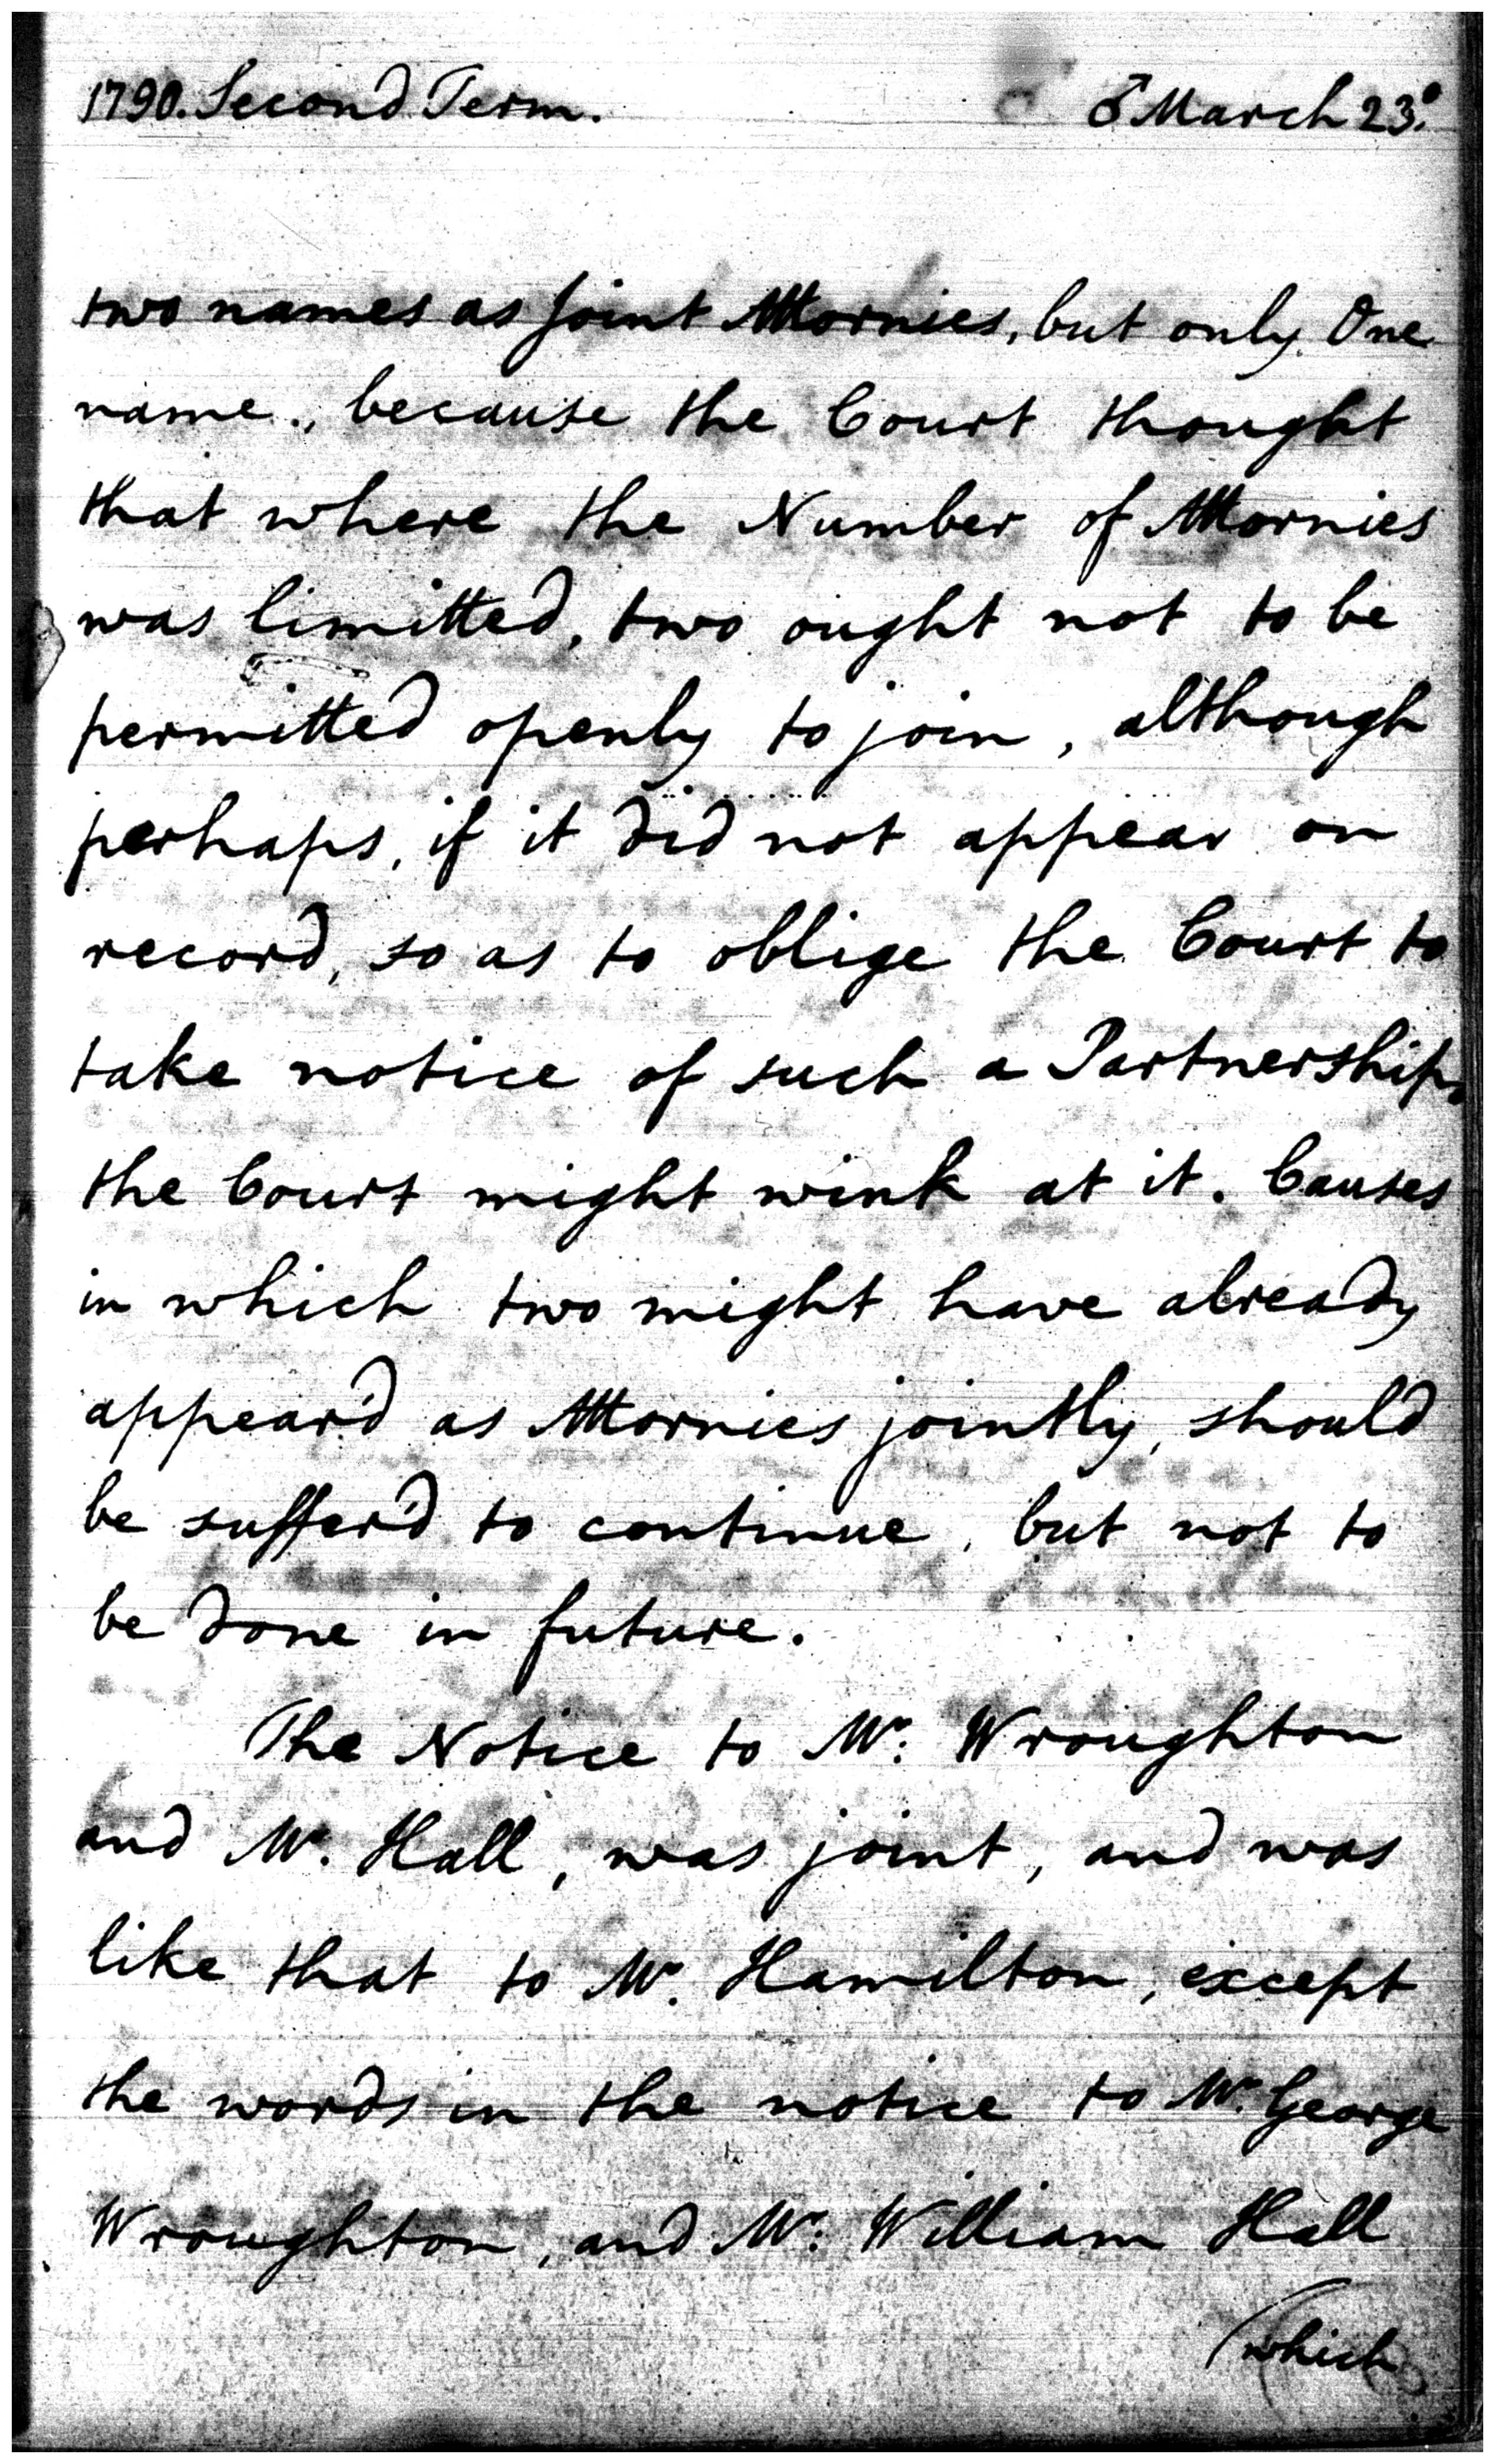 1790. Second Term. ♂ March 23.
two names as joint Attornies, but only One
name, because the Court thought
that where the Number of Attornies
was limitted, two ought not to be
permitted openly to join, although
perhaps, if it did not appear on
record, so as to oblige the Court to
take notice of such a Partnership,
the Court might wink at it. Causes
in which two might have already
appear'd as Attornies jointly, should
be suffer'd to continue, but not to
be done in future.
The Notice to Mr. Wroughton
and Mr. Hall, was joint, and was
like that to Mr. Hamilton, except
the words in the notice to Mr. George
Wroughton, and Mr. William Hall
(which